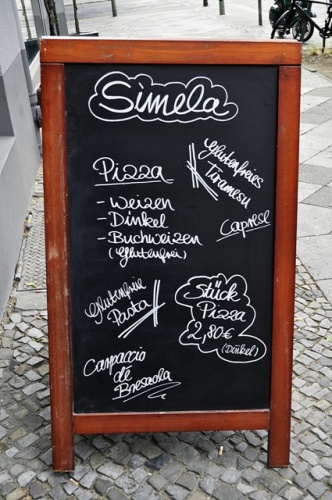 Simela
Pizza
- Weizen
- Dinkel
- Buchweizen
(glutenfrei)
glutenfreies
Tiramesu
Caprese
glutenfreie
Pasta
Stück
Pizza
2,80€
(Dinkel)
Carpaccio
dé
Bresaola